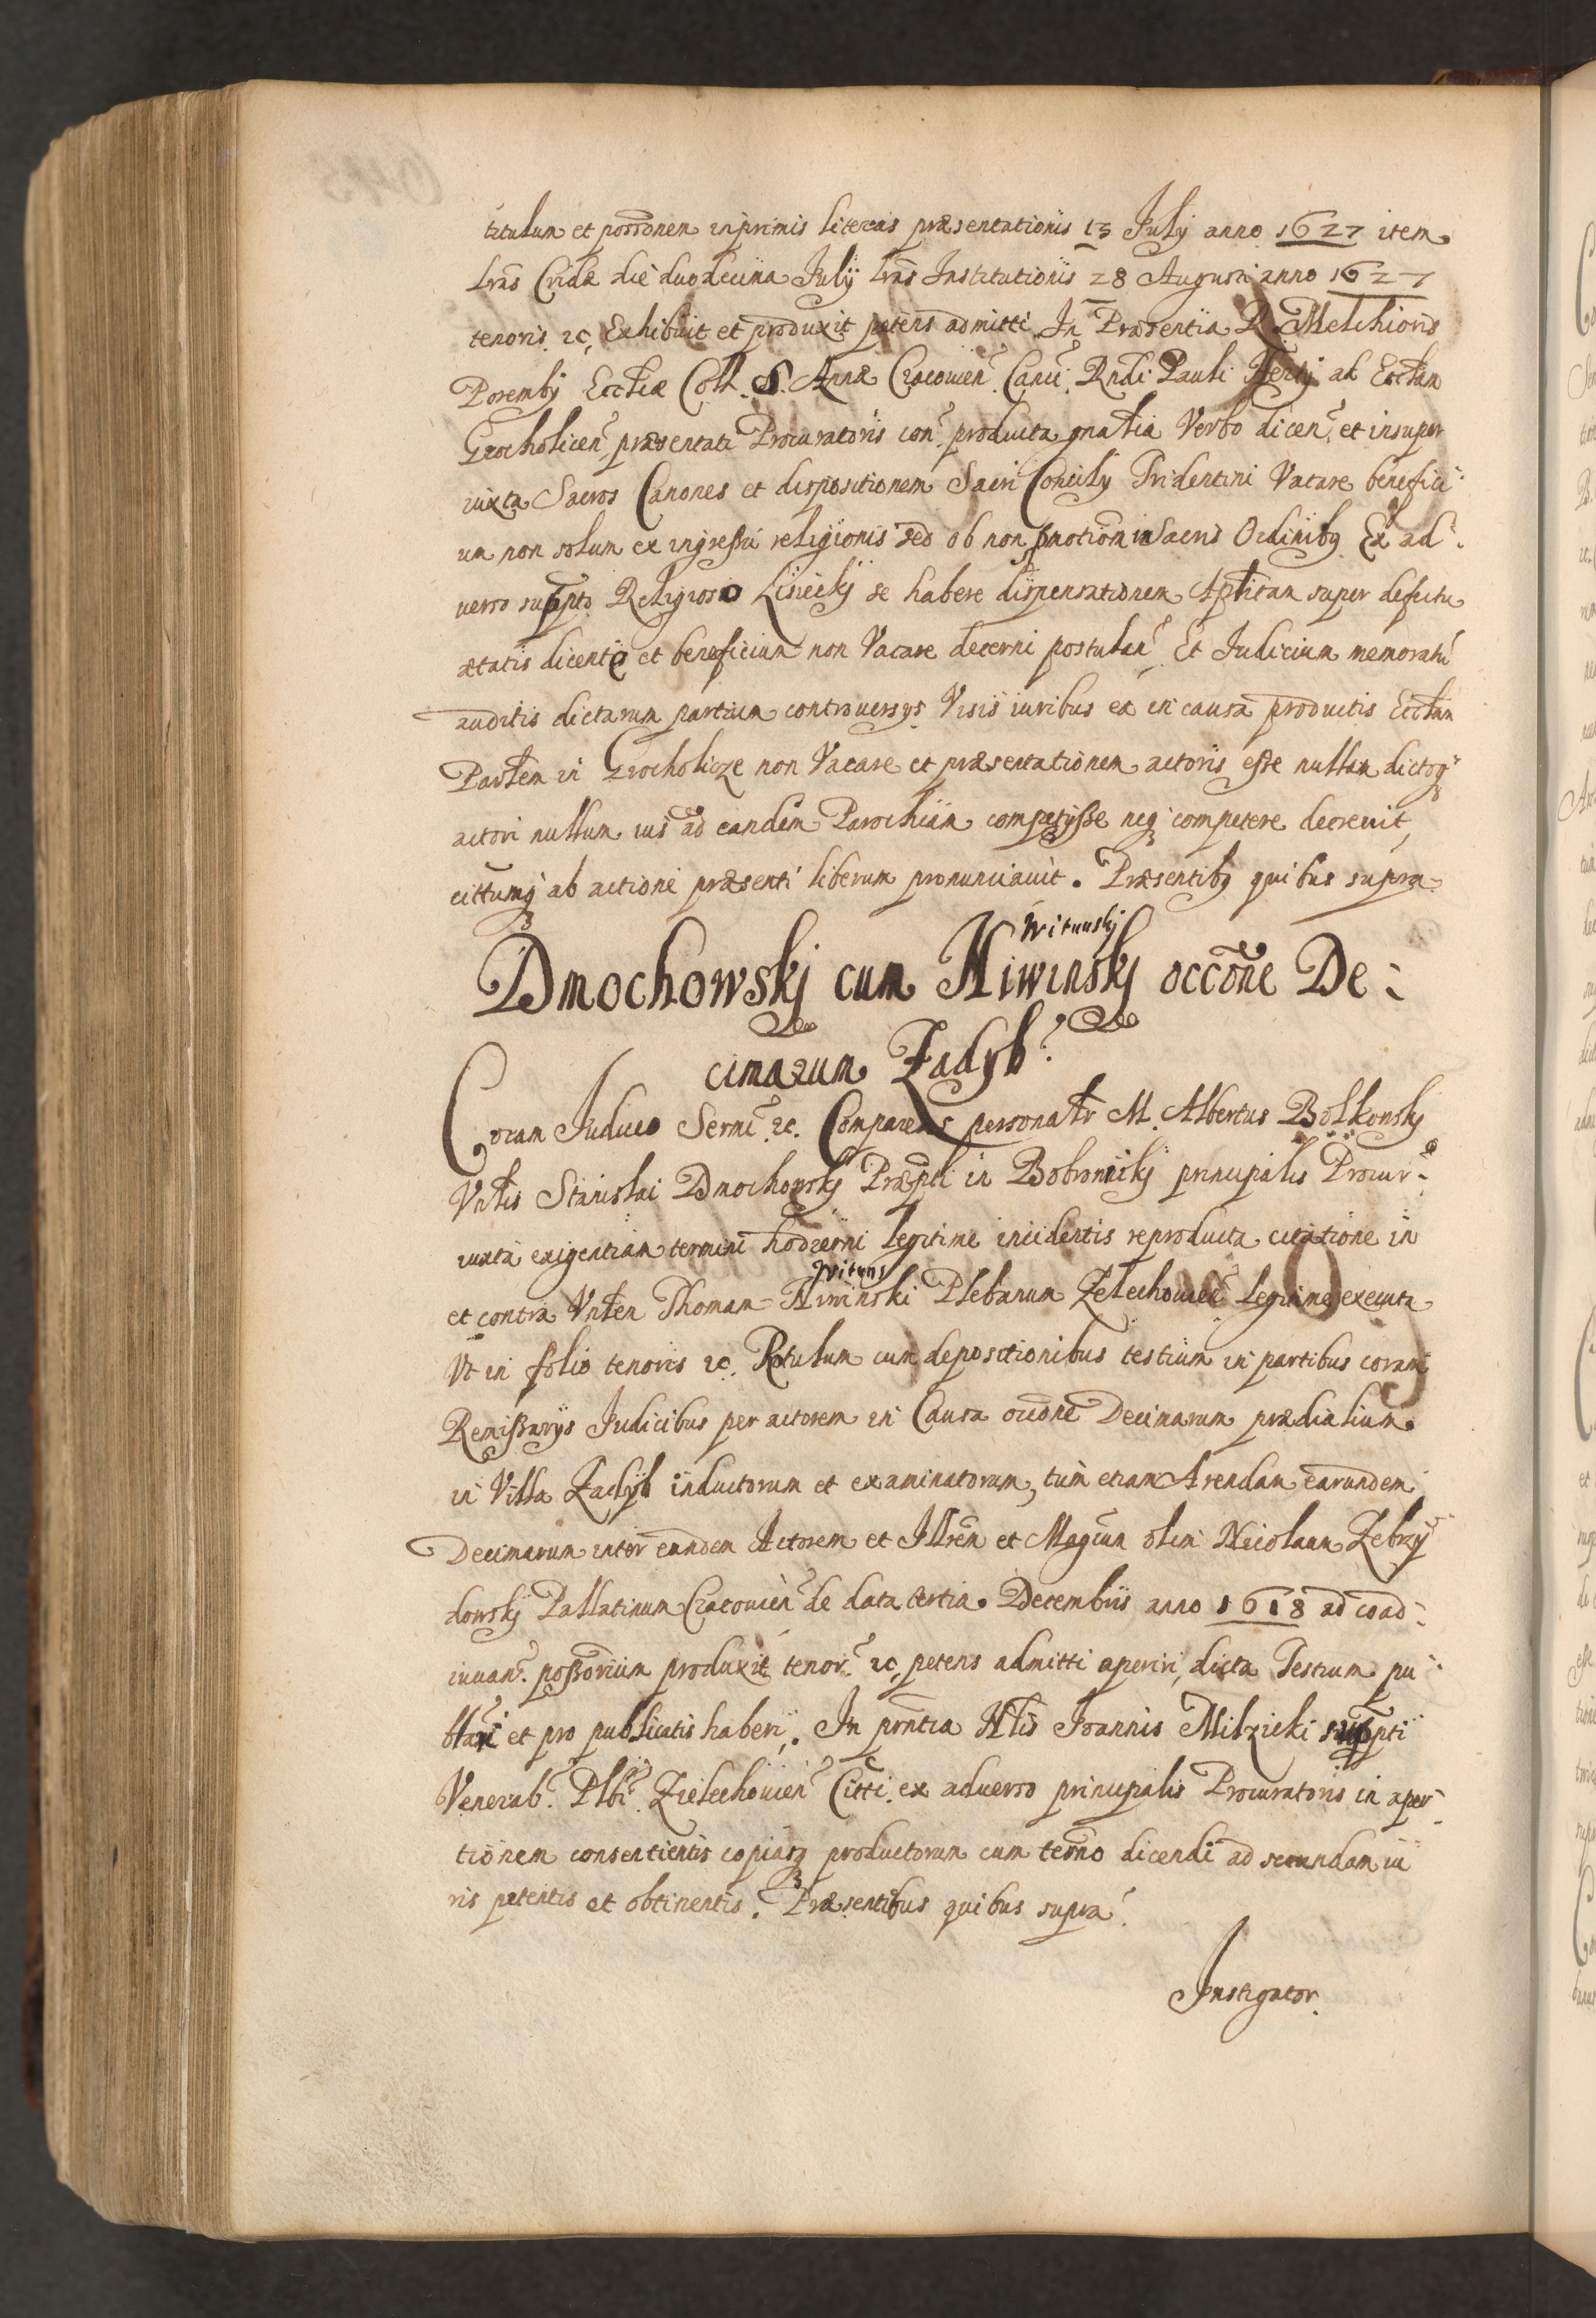 titulum et possonem inprimis literas præsentationis 13 July anno 1627 item
Lras Cridæ die duodecima July lras Institutionis 28 Augusti anno 1627
tenoris 2c, Exhibuit et produxit petens admitti In Præsentia R. Melchioris
Poremby Eccliæ Coll. S. Annæ Cracouien Canci Rndi Pauli ad Ecclam
Grocholicen præsentati Procuratoris con producta gnalia Verbo dicen, et insuper
iuxta Sacros Canones et dispositionem Sacri Concily Tridentini Vacare benefici
um non solum ex ingressu religionis sed ob non pmotiom in Sacris Ordinibq Ex ad
uerso supto Religioso Lisiecky se habere dispensationem Aplicam super defectu
ætatis dicente et beneficium non Vacare decerni postulan Et Iudicium memoratu
auditis dictarum partium controuersys Visis iuribus ex in causa productis Ecclam
Parlem in Grocholicze non Vacare et præsentationem actoris esse nullam dictoq
actori nullum ius ad eandem Parochiam competysse neq competere decreuit,
cittumq ab actione præsenti liberum pronunciauit. Præsentibq quibus supra
Witunskj
Dmochowskj cum Niwinskj occone De:
cimarum Zadyb
Coram Iudicio Sermi 2c. Comparens personalr M. Albertus Bolkonsky
Vnlis Stanislai Dmochowsky Præpti in Bobrowniky principalis Procur
iuxta exigentiam termini hodierni legitime incidentis reproducta citatione in
Wituns
et contra Vnlem Thomam Niwinski Plebanum Zelechouien legitime executa
Vt in folio tenoris 2c. Rotulum cum depositionibus testium in partibus coram
Remissarys Iudicibus per actorem in Causa occone Decimarum prædialium
in Villa Zadyb inductorum et examinatorum, tum etiam Arendam earundem
Decimarum inter eundem Actorem et Illrem et Magcum olim Nicolaum Zebrzy
dowsky Pallatinum Cracouien de data tertia Decembris anno 1618 ad coad
iuuan. possorium produxit tenor 2c, petens admitti aperiri, dicta Testium pu
blari et pro publicatis haberi. In prntia Nlis Ioannis Milzicki supti
Venerab. Plbi Zielechouien Citti ex aduerso principalis Procuratoris in aper
tionem consentientis copiasq productorum cum termo dicendi ad secundam iu
ris petentis et obtinentis. Præsentibus quibus supra.
Instigator.